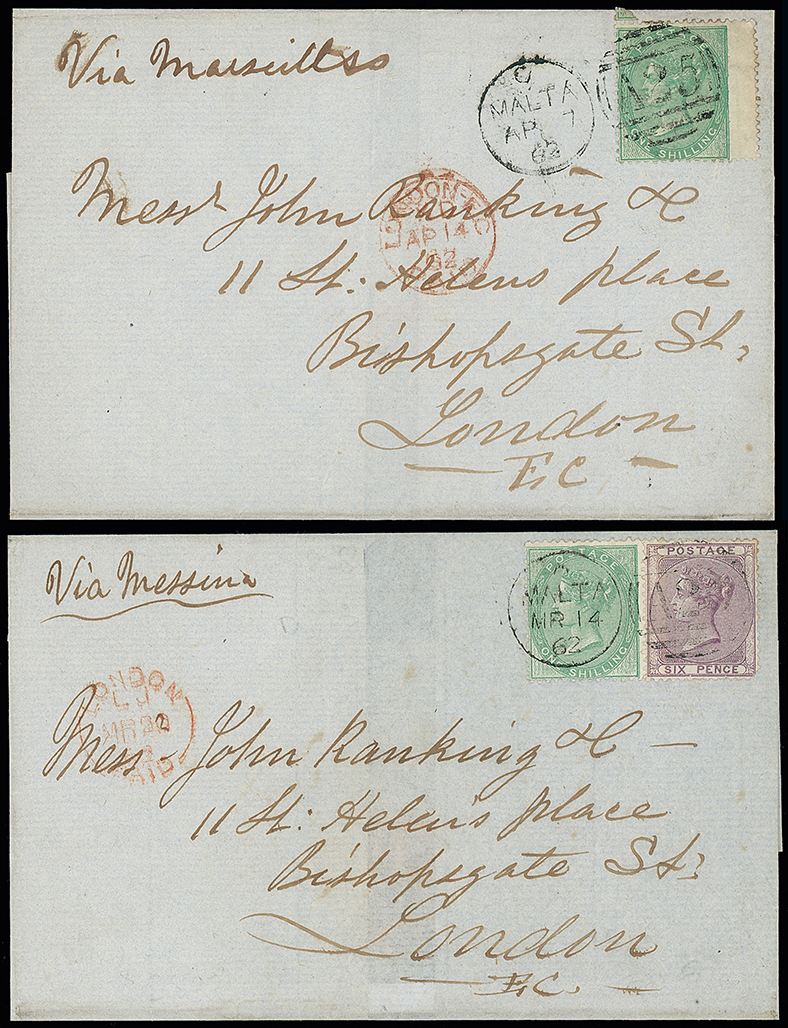 Via Marseilles
C
MALTA
AP 7
62
A25
ONE SHILLING
Messrs John Ranking & C
LONDON-EC
AP 14
62
11 St: Helens place
Bishopsgate St,
London
E,C,
Via Messina
MALTA
MR 14
62
POSTAGE
ONE SHILLING
POSTAGE
SIX PENCE
LONDON
MR 20
PAID
Messrs John Ranking & C
11 St: Helen's place
Bishopsgate St,
London
E,C.